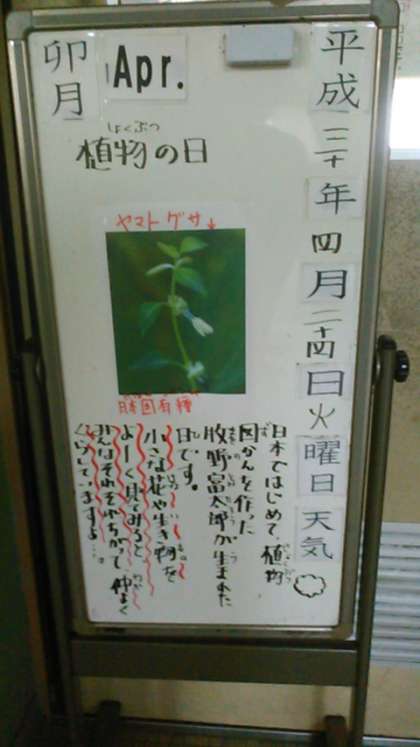 平成三十年四月二十四日火曜日天気
卯月
Apr.
しょくぶつ
植物の日
ヤマトグサ↓
日本固有種
日本ではじめて、植物
図かんを作った
牧野富太郎が生まれた
日です。
小さな花や生き物を
よーく見てみると
みんなそれぞれちがって仲よく
くらしていますよ…。